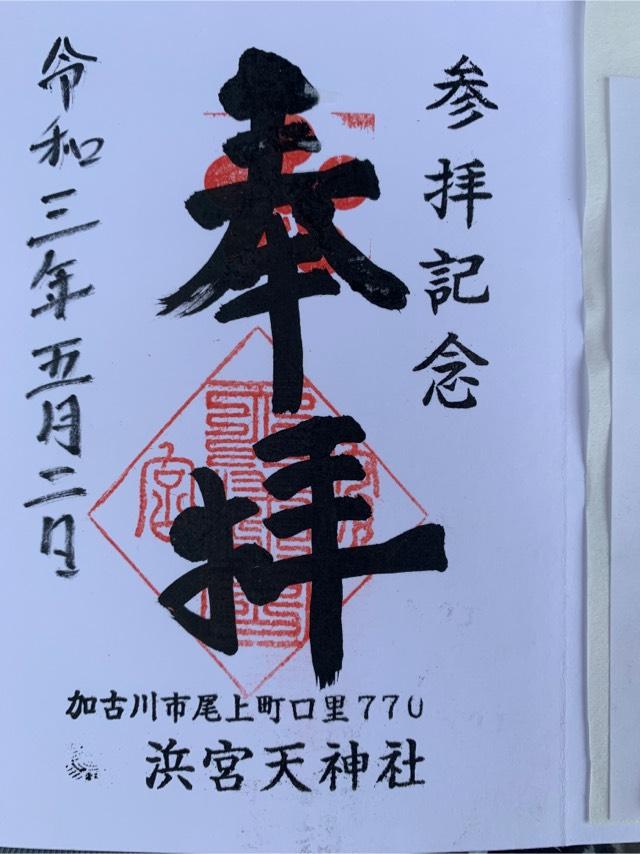 参拝記念
奉拝
令和三年五月二日
加古川市尾上町口里770
浜宮天神社